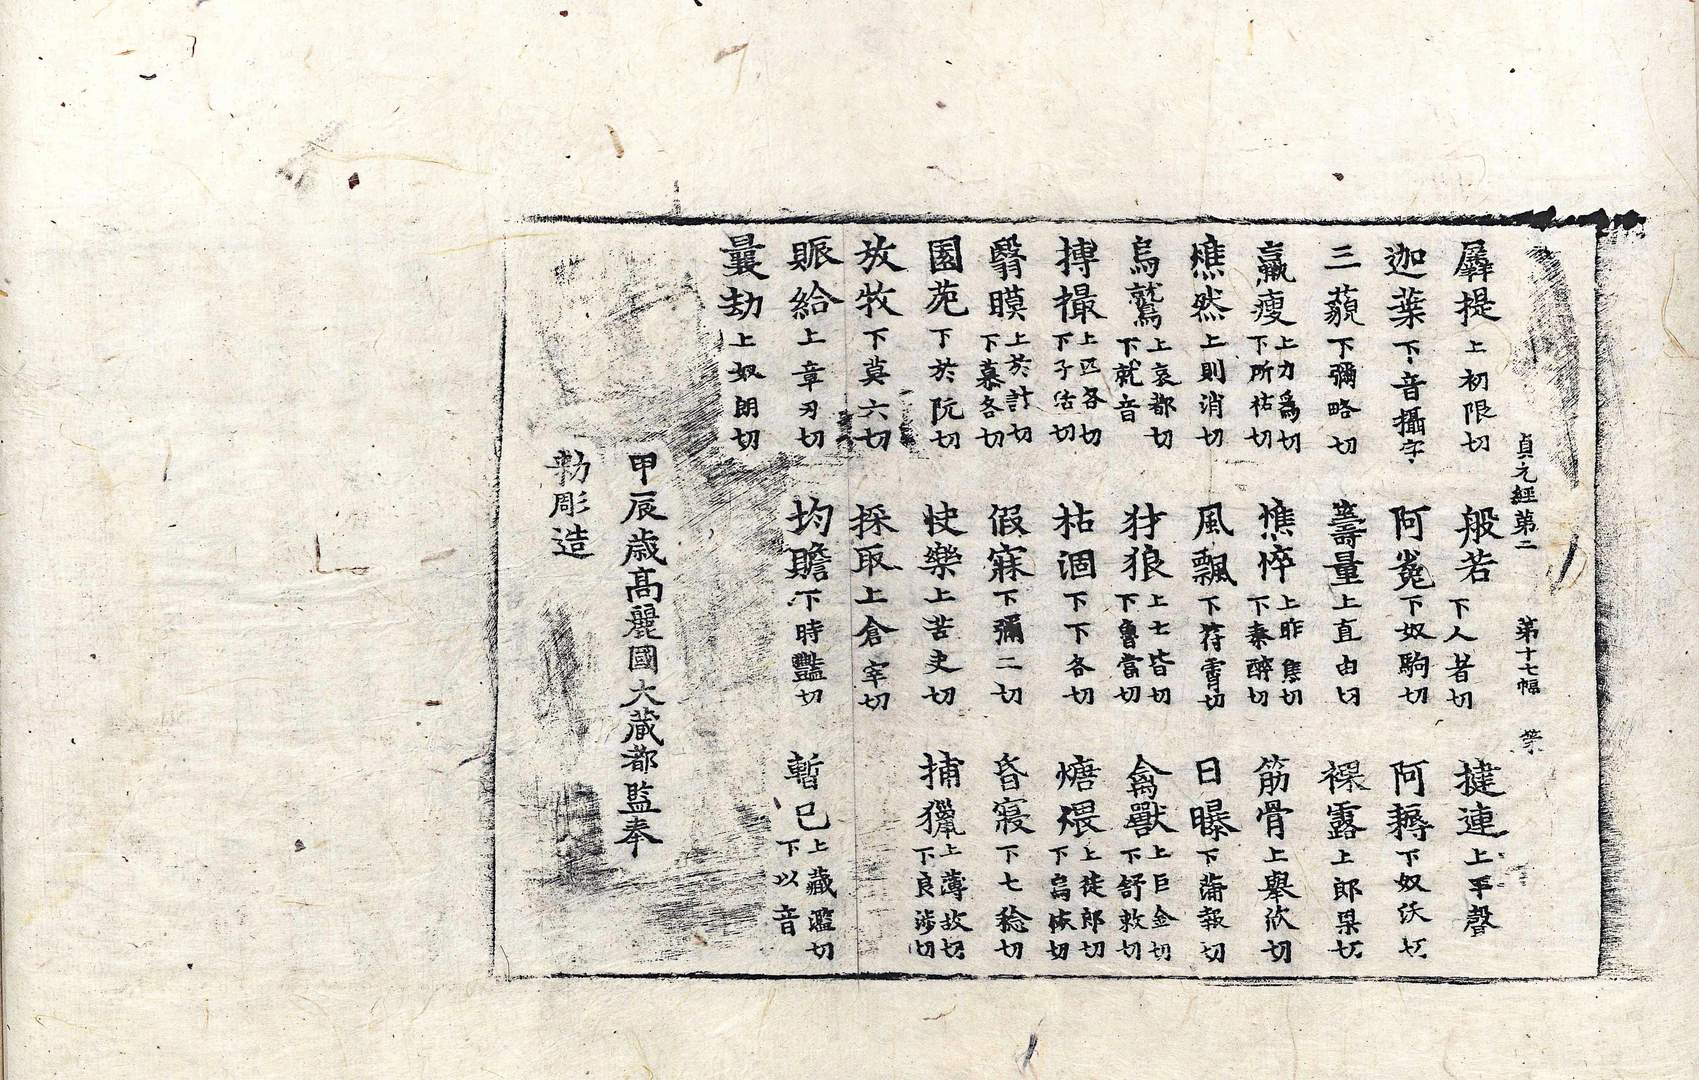 貞元經第二 第十七幅 㭍
羼提上初限切 般若下人者切 揵連上平聲
迦葉下音攝字 阿㝹下奴駒切 阿耨下奴沃切
三藐下彌略切 籌量上直由切 裸露上郎果切
羸瘦上力爲切下所祐切 憔悴上昨焦切下秦醉切 筋骨上舉欣切
燋然上則消切 風飄下符霄切 日曝下蒲報切
烏鷲上哀都切下就音 犲狼上士皆切下魯當切 禽獸上巨金切下舒救切
搏撮上匹各切下子活切 枯涸下下各切 煻煨上徒郎切下烏恢切
翳瞙上於計切下慕各切 假寐下彌二切 昏寢下七稔切
園苑下於阮切 快樂上苦夬切 捕獵上薄故切下良涉切
放牧下莫六切 採取上倉宰切
賑給上章刃切 均贍下時豔切 暫已上藏濫切下以音
曩劫上奴朗切
甲辰歲高麗國大藏都監奉
勅彫造